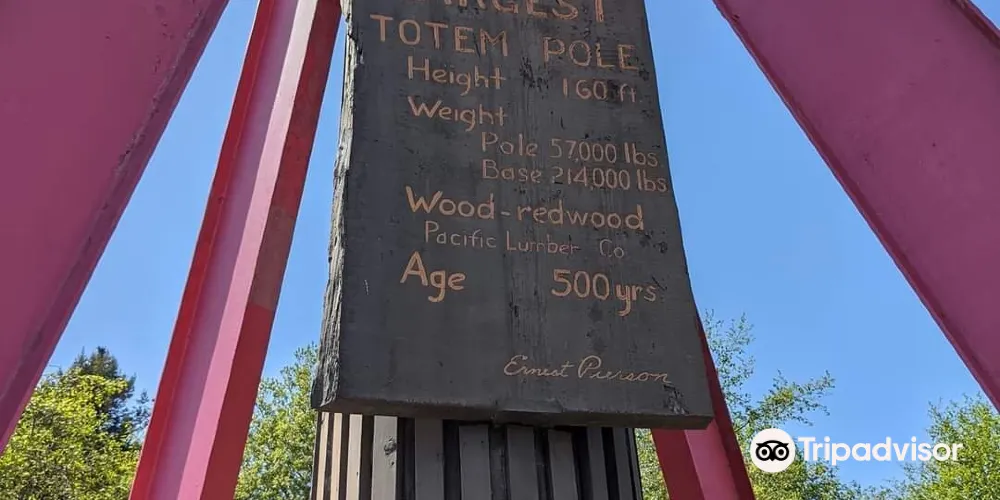 LARGEST
TOTEM POLE
Height 160 ft.
Weight
Pole 57,000 lbs
Base 214,000 lbs
Wood-redwood
Pacific Lumber Co
Age 500 yrs
Ernest Pierson
Tripadvisor